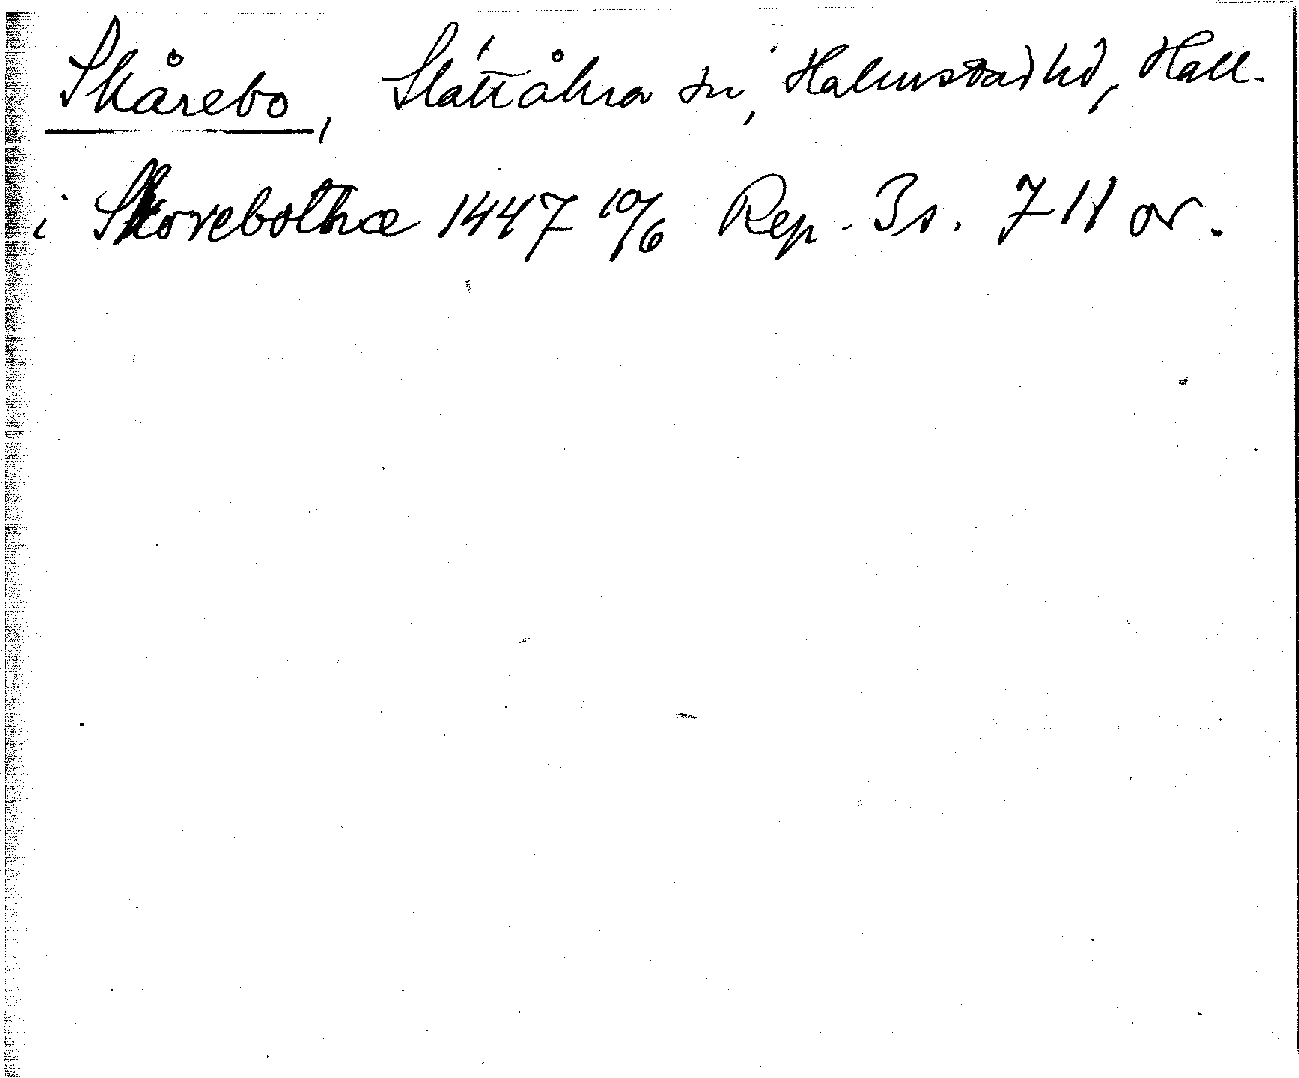 Skårebo, Slättåkra sn, Halmstad hd, Hall.
i Skorebothæ 1447 10/6 Rep. 3 s. 711 or.